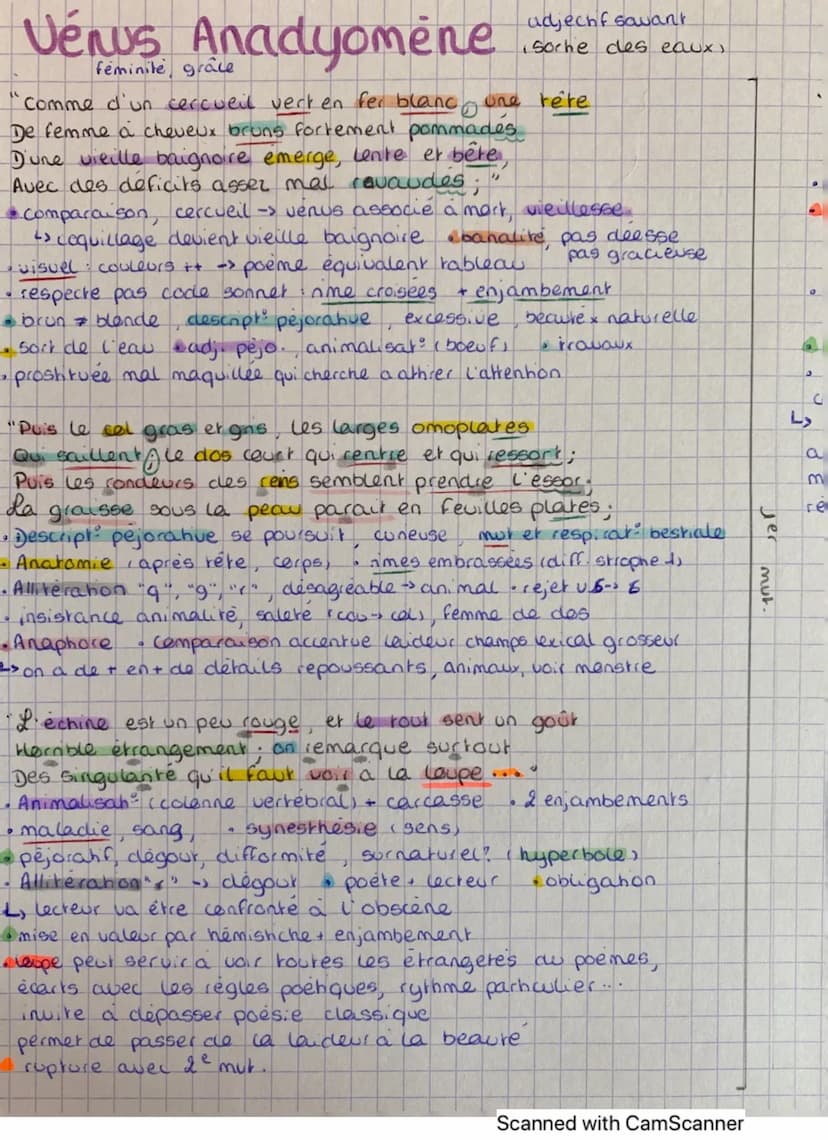 Vénus Anadyomène
adjectif savant
(sortie des eaux)
féminité, grâce
"Comme d'un cercueil vert en fer blanc, une tête
De femme à cheveux bruns fortement pommadés
D'une vieille baignoire émerge, lente et bête,
Avec des déficits assez mal ravaudés ;"
• comparaison, cercueil -> vénus associé à mort, vieillesse
↳ coquillage devient vieille baignoire • banalité, pas déesse
pas gracieuse
• visuel : couleurs ++ -> poème équivalent tableau
• respecte pas code sonnet : rime croisées + enjambement
• brun ≠ blonde, descript° péjorative, excessive, beauté x naturelle
• sort de l'eau • adj. péjo., animalisat° (boeuf) • travaux
• prostituée mal maquillée qui cherche a attirer l'attention
"Puis le col gras et gris, les larges omoplates
Qui saillent ; le dos court qui rentre et qui ressort ;
Puis les rondeurs des reins semblent prendre l'essor ;
La graisse sous la peau paraît en feuilles plates ;
• Descript° péjorative se poursuit, curieuse, mvt et respirat° bestiale
• Anatomie (après tête, corps) • rimes embrassées (diff. strophe 1)
• Allitération "q", "g", "r", désagréable -> animal • rejet v5-> 6
• insistance animalité, saleté (cou -> col), femme de dos
• Anaphore • comparaison accentue laideur champs lexical grosseur
↳ on a de + en + de détails repoussants, animaux, voir monstre
"L'échine est un peu rouge, et le tout sent un goût
Horrible étrangement ; on remarque surtout
Des singularité qu'il faut voir à la loupe ..."
• Animalisat° (colonne vertébral) + carcasse • 2 enjambements
• maladie, sang, • synesthésie (sens)
• péjoratif, dégout, difformité, surnaturel? (hyperbole)
• Allitération "r" -> dégout • poète + lecteur • obligation
↳ lecteur va être confronté à l'obscène
• mise en valeur par hémistiche + enjambement
• loupe peut servir à voir toutes les étrangetés du poèmes,
écarts avec les règles poétiques, rythme particulier...
invite à dépasser poésie classique
permet de passer de la laideur à la beauté
rupture avec 2e mvt.
1er mvt.
Scanned with CamScanner